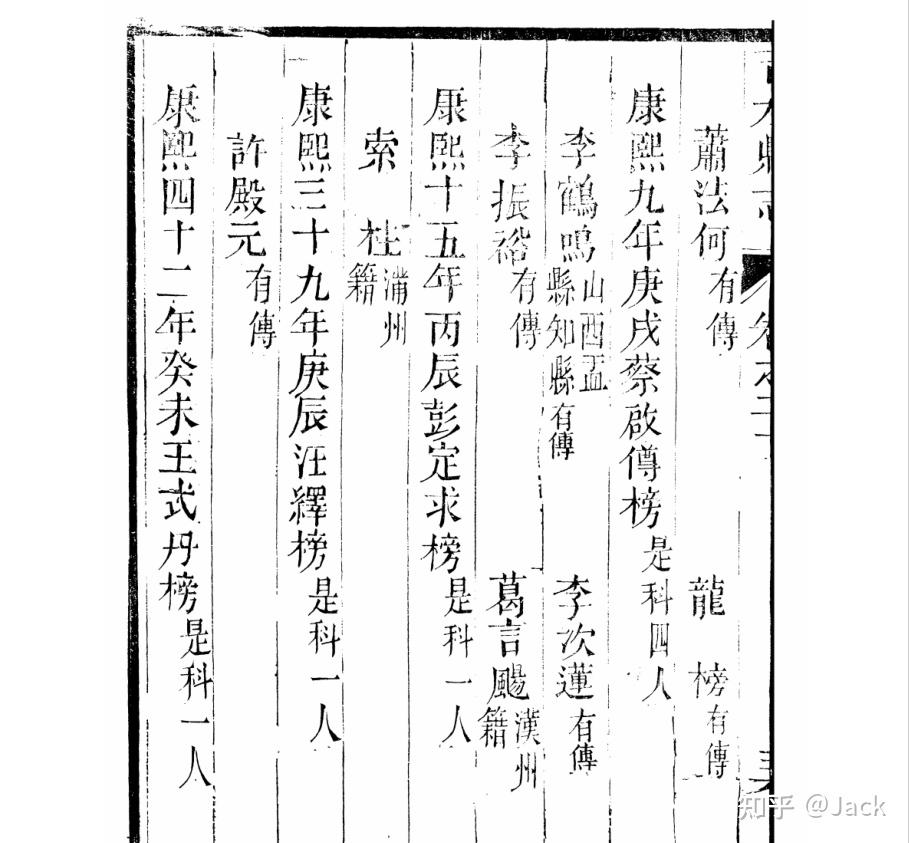 蕭法何有傳 龍榜有傳
康熙九年庚戌蔡啟僔榜是科四人
李鶴鳴山西盂縣知縣有傳 李次蓮有傳
李振裕有傳 葛言颺漢州籍
康熙十五年丙辰彭定求榜是科一人
索桂滿州籍
康熙三十九年庚辰汪繹榜是科一人
許殿元有傳
康熙四十二年癸未王式丹榜是科一人
知乎 @Jack